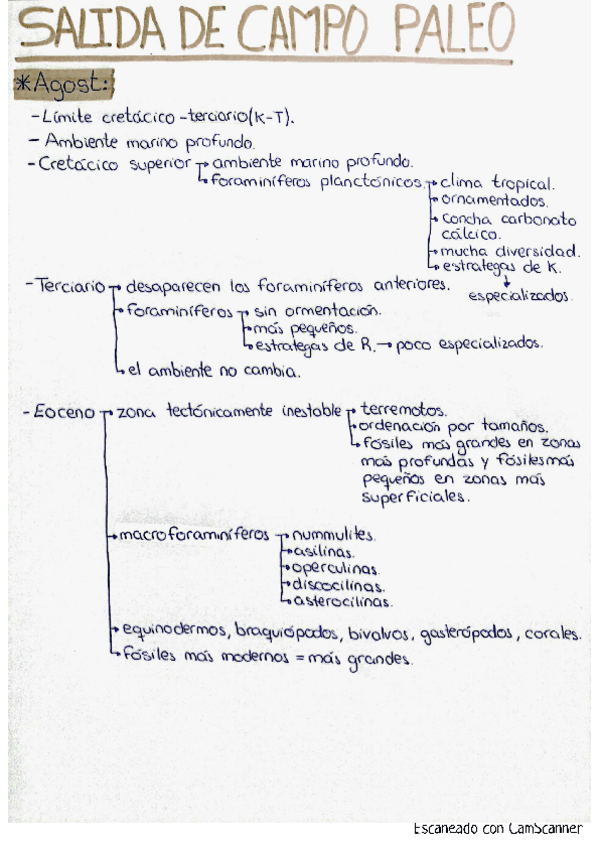 SALIDA DE CAMPO PALEO
*Agost:
- Límite cretácico - terciario (K-T).
- Ambiente marino profundo.
- Cretácico superior → ambiente marino profundo.
→ foraminíferos planctónicos. → clima tropical.
→ ornamentados.
→ concha carbonato
cálcico.
→ mucha diversidad.
→ estrategas de K.
↓
especializados.
- Terciario → desaparecen los foraminíferos anteriores.
→ foraminíferos → sin ormentación.
→ más pequeños.
→ estrategas de R. → poco especializados.
→ el ambiente no cambia.
- Eoceno → zona tectónicamente inestable → terremotos.
→ ordenación por tamaños.
→ fósiles más grandes en zonas
más profundas y fósiles más
pequeños en zonas más
superficiales.
→ macroforaminíferos → nummulites.
→ asilinas.
→ operculinas.
→ discocilinas.
→ asterocilinas.
→ equinodermos, braquiópodos, bivalvos, gasterópodos, corales.
→ fósiles más modernos = más grandes.
Escaneado con CamScanner